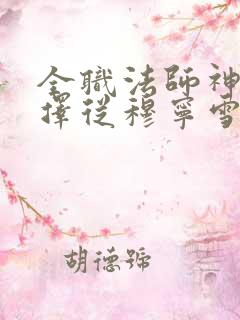 全職法師神
擇從穆寧雪
胡德號